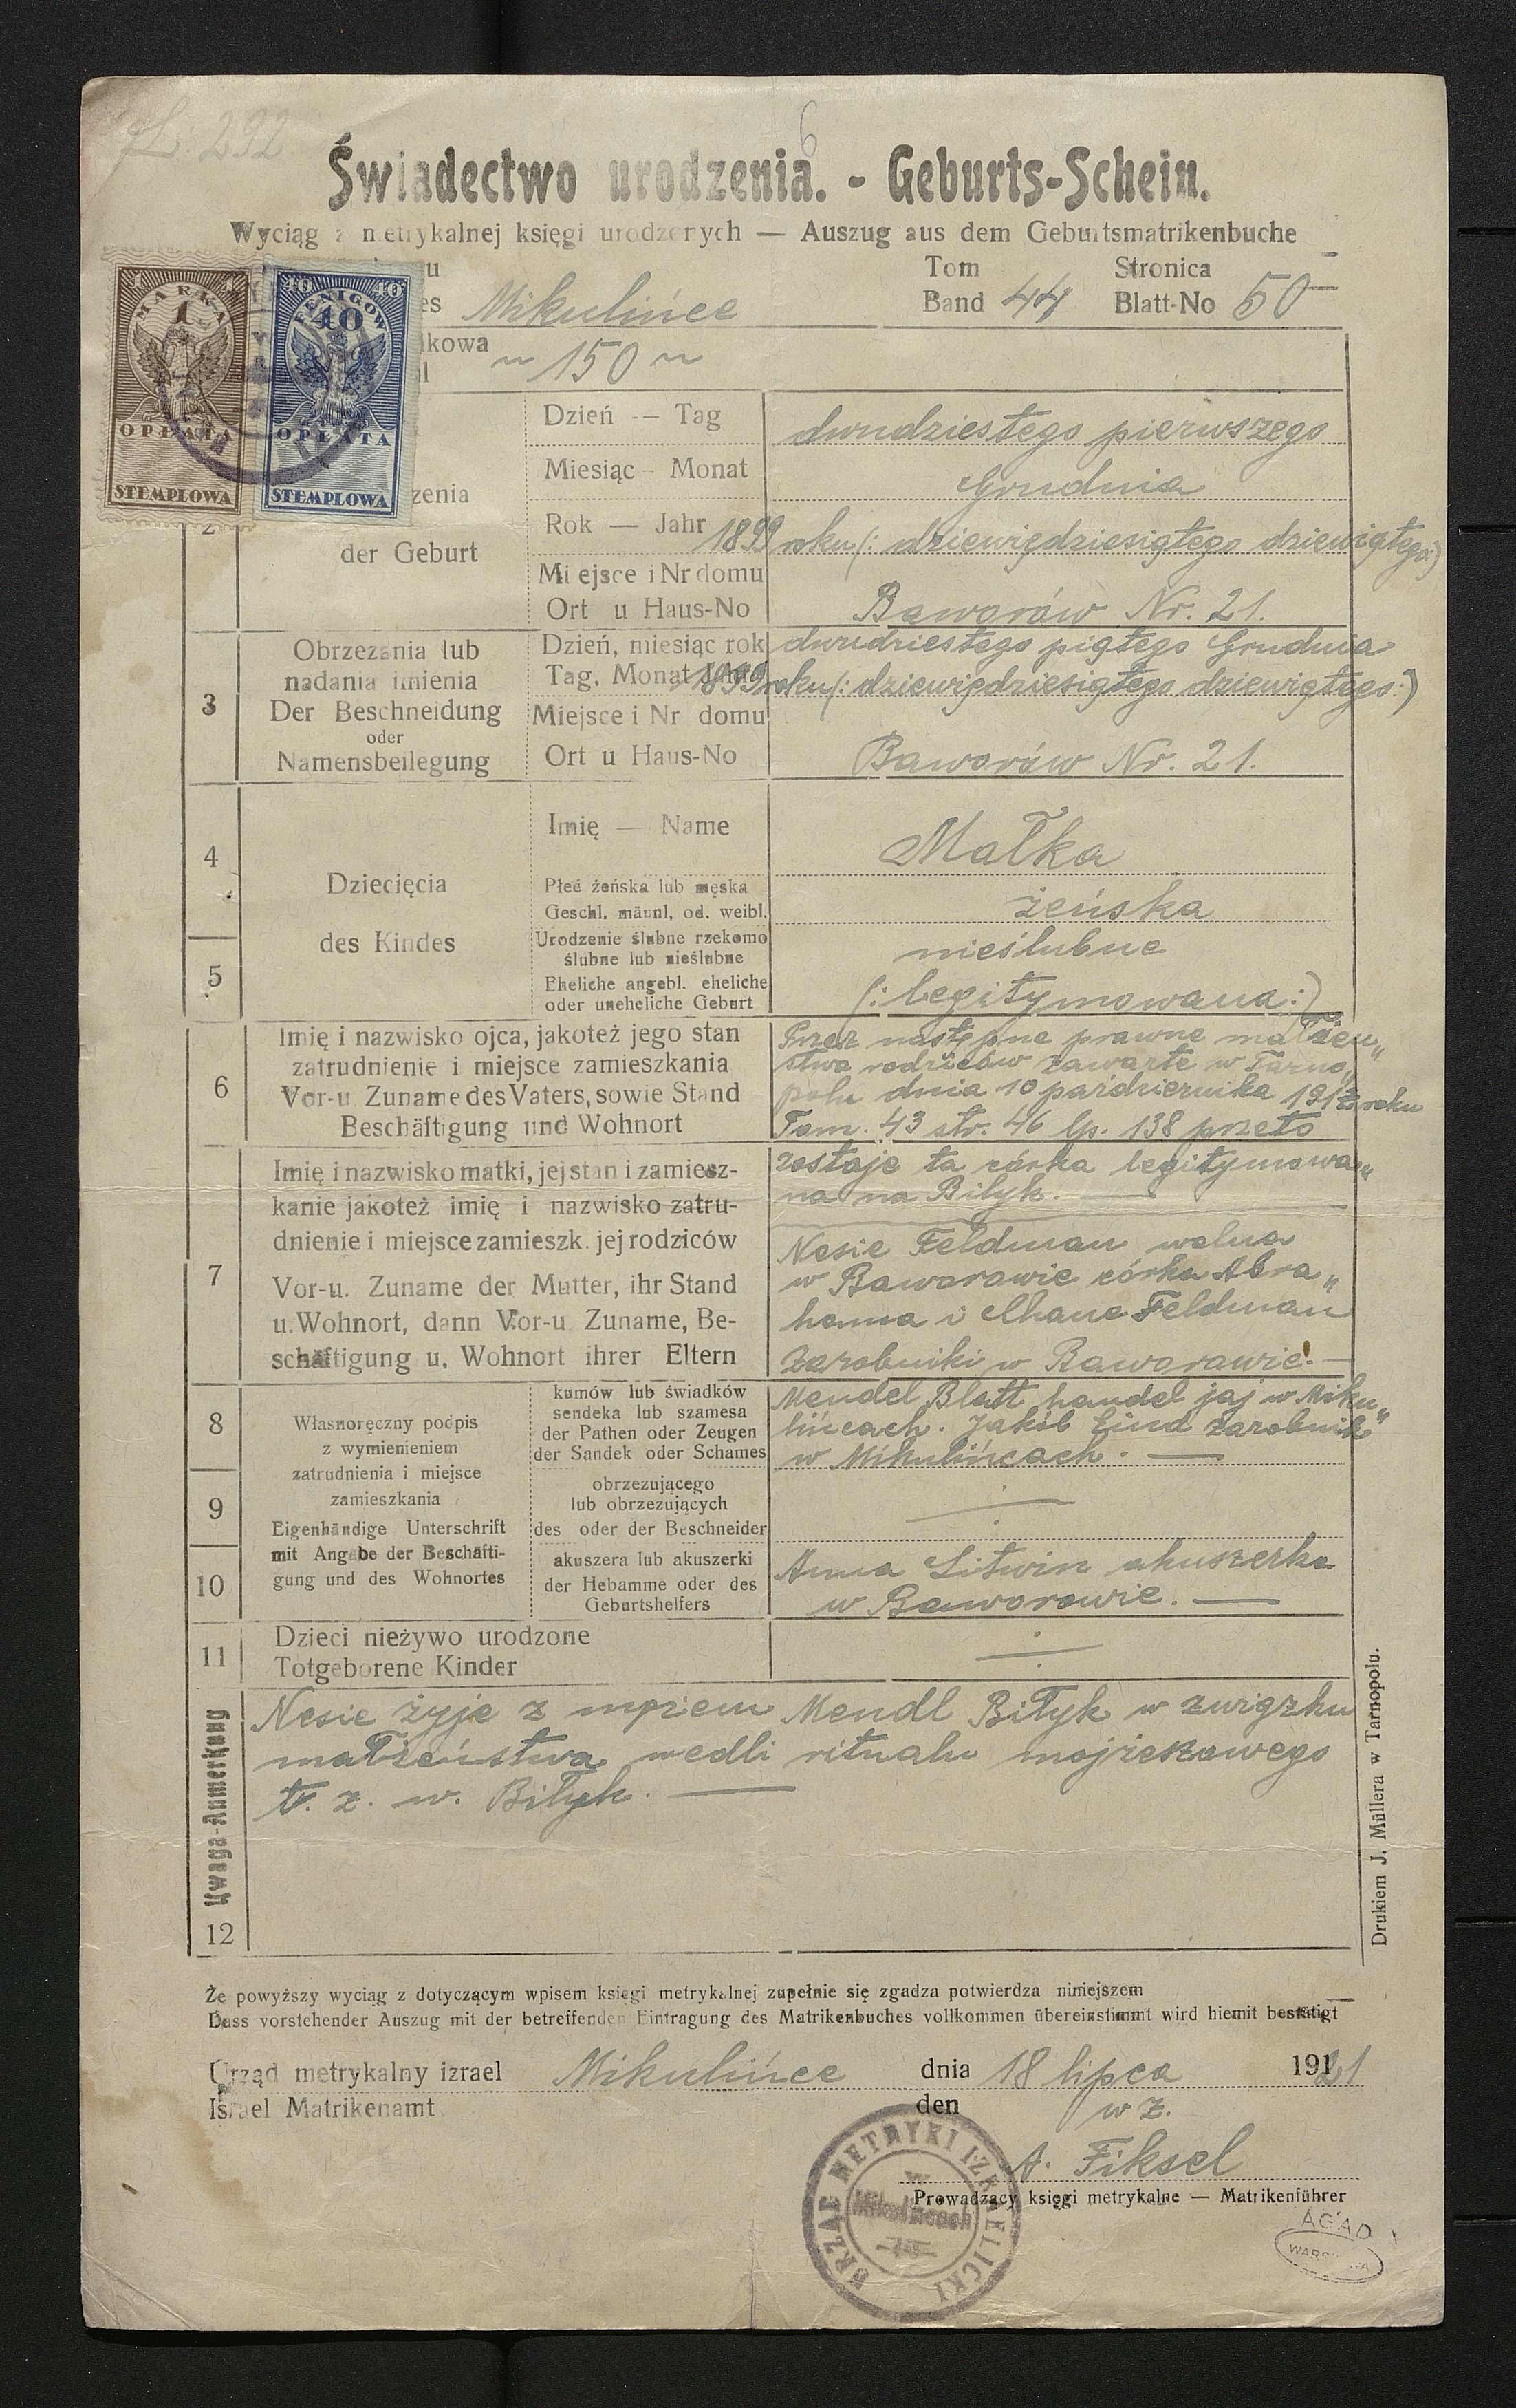 L: 292
6
Świadectwo urodzenia. - Geburts-Schein.
Wyciąg z metrykalnej księgi urodzonych — Auszug aus dem Geburtsmatrikenbuche
u
es Mikulińce
Tom Band 44 Stronica Blatt-No 50
kowa
l ~ 150 ~
1 MARKA 1
OPŁATA
STEMPLOWA
40 FENIGÓW 40
40
OPŁATA
STEMPLOWA
2
zenia
der Geburt
Dzień -- Tag dwudziestego pierwszego
Miesiąc - Monat Grudnia
Rok — Jahr 1899 roku (: dziewiędziesiątego dziewiątego:)
Miejsce i Nr domu
Ort u Haus-No Baworów Nr. 21.
3
Obrzezania lub
nadania imienia
Der Beschneidung
oder
Namensbeilegung
Dzień, miesiąc rok dwudziestego piątego Grudnia
Tag, Monat Jahr 1899 roku (: dziewiędziesiątego dziewiątego:)
Miejsce i Nr domu
Ort u Haus-No Baworów Nr. 21.
4
5
Dziecięcia
des Kindes
Imię — Name Małka
Płeć żeńska lub męska
Geschl. männl, od. weibl. żeńska
Urodzenie ślubne rzekomo
ślubne lub nieślubne nieślubne
Eheliche angebl. eheliche
oder uneheliche Geburt (: legitymowana :)
6
Imię i nazwisko ojca, jakoteż jego stan
zatrudnienie i miejsce zamieszkania
Vor-u Zuname des Vaters, sowie Stand
Beschäftigung und Wohnort
Przez następne prawne małżeń„
stwa rodziców zawarte w Tarno„
polu dnia 10 pażdziernika 1912 roku
Tom. 43 str. 46 lp. 138 przeto
7
Imię i nazwisko matki, jej stan i zamiesz-
kanie jakoteż imię i nazwisko zatru-
dnienie i miejsce zamieszk. jej rodziców
Vor-u. Zuname der Mutter, ihr Stand
u. Wohnort, dann Vor-u Zuname, Be-
schäftigung u. Wohnort ihrer Eltern
zostaje ta córka legitymowa„
na na Bilyk. —
Nesie Feldman wolna
w Baworowie córka Abra„
hama i Chane Feldman
zarobniki w Baworowie. —
8
9
10
Własnoręczny podpis
z wymienieniem
zatrudnienia i miejsce
zamieszkania
Eigenhändige Unterschrift
mit Angabe der Beschäfti-
gung und des Wohnortes
kumów lub świadków
sendeka lub szamesa
der Pathen oder Zeugen
der Sandek oder Schames
Mendel Blatt handel jaj w Miku„
lińcach. Jakób Lind zarobnik
w Mikulińcach. —
obrzezującego
lub obrzezujących
des oder der Beschneider
akuszera lub akuszerki
der Hebamme oder des
Geburtshelfers
Anna Litwin akuszerka
w Baworowie. —
11
Dzieci nieżywo urodzone
Totgeborene Kinder
Uwaga-Anmerkung
12
Nesie żyje z mężem Mendl Biłyk w związku
małżeństwa wedli rituału mojżeszowego
t. z. w. Biłyk. —
Drukiem J. Müllera w Tarnopolu.
Że powyższy wyciąg z dotyczącym wpisem księgi metrykalnej zupełnie się zgadza potwierdza niniejszem
Dass vorstehender Auszug mit der betreffenden Eintragung des Matrikenbuches vollkommen übereinstimmt wird hiemit bestätigt
Urząd metrykalny izrael Mikulińce dnia 18 lipca 1921
Israel Matrikenamt den w z.
A. Fiksel
Prowadzący księgi metrykalne — Matrikenführer
URZĄD METRYKI IZRAELICKI
w
Mikulińcach
AGAD
WARSZAWA